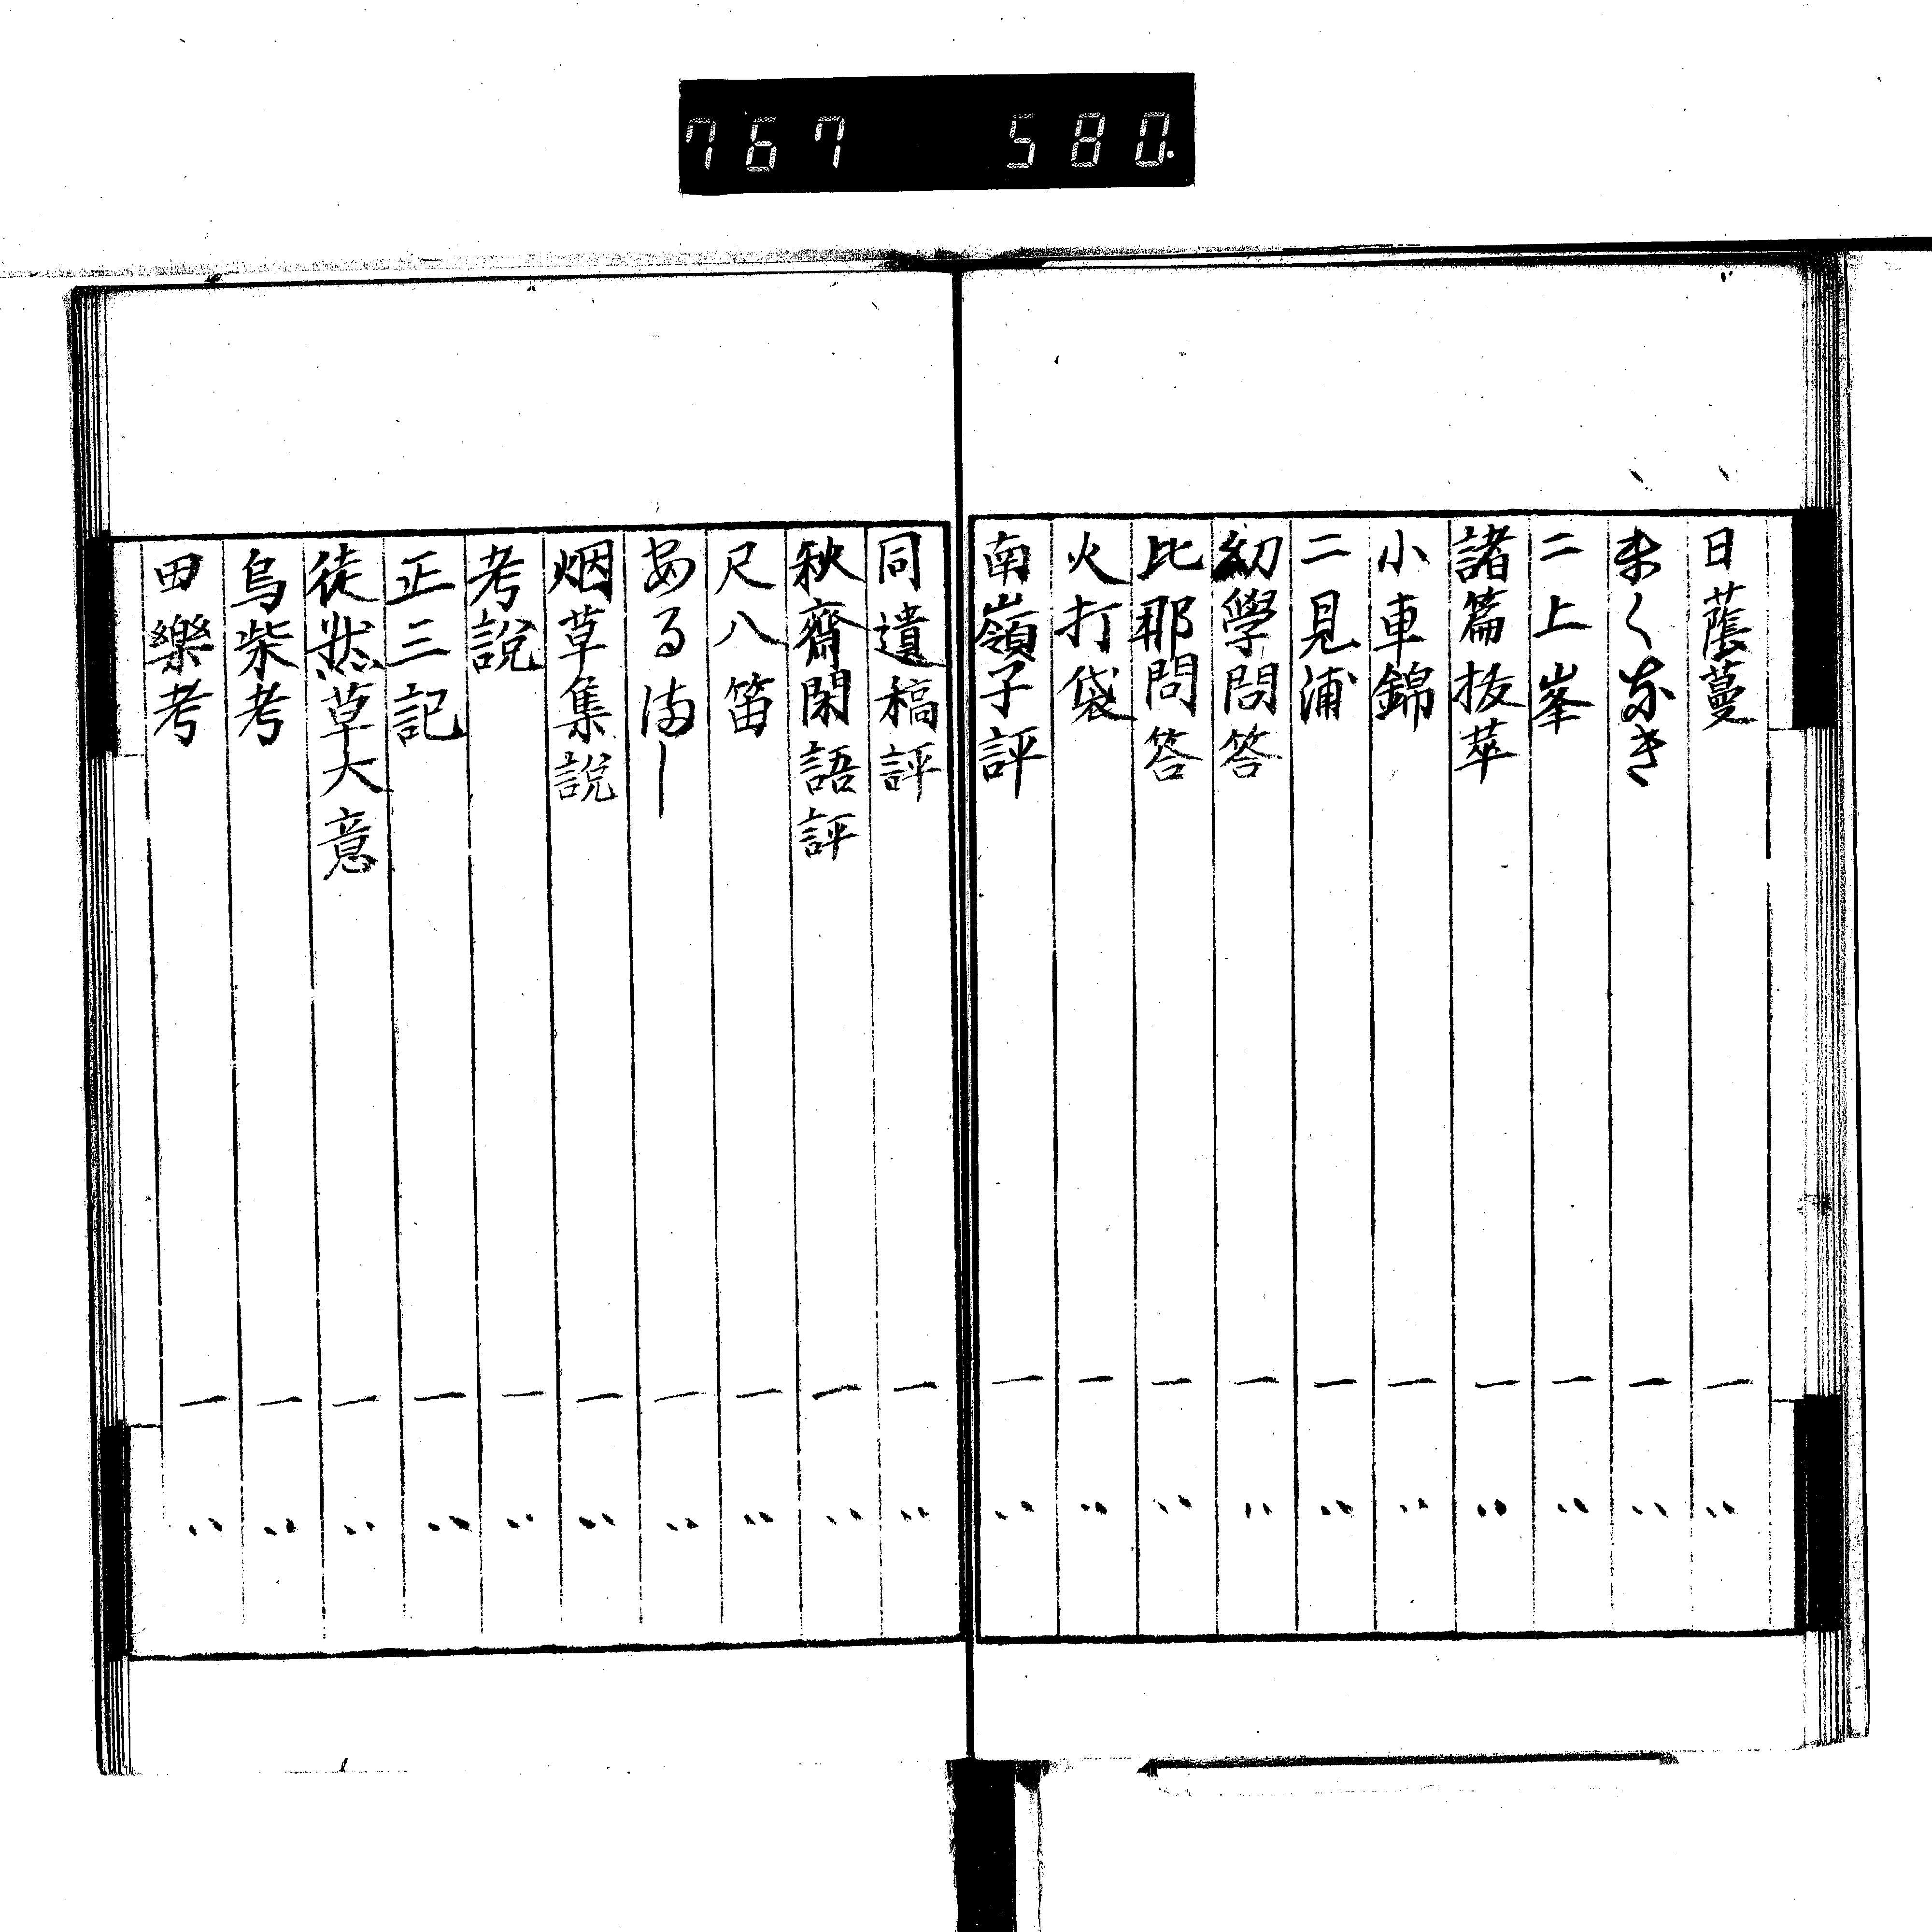 767 580.
日蔭蔓 一 〃
まくなき 一 〃
二上峯 一 〃
諸篇抜萃 一 〃
小車錦 一 〃
二見浦 一 〃
幼學問答 一 〃
比那問答 一 〃
火打袋 一 〃
南嶺子評 一 〃
同遺稿評 一 〃
秋齋閑語評 一 〃
尺八笛 一 〃
あるまし 一 〃
烟草集說 一 〃
考說 一 〃
正三記 一 〃
徒然草大意 一 〃
烏柴考 一 〃
田樂考 一 〃